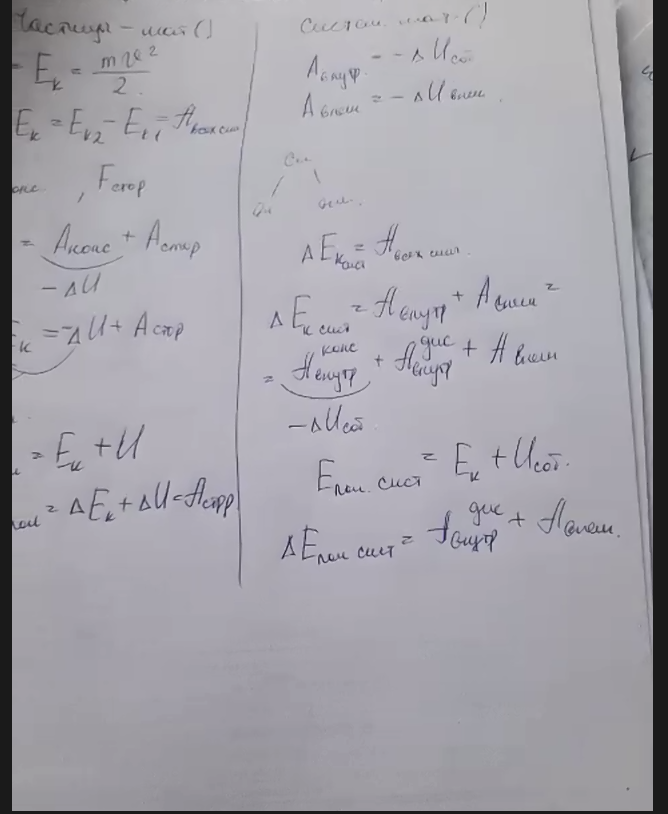 Частицы - мат ()
= E_к = mv²/2
E_к = E_к2 - E_к1 = A_всех сил
конс , F_стор
= A_конс + A_стор
- ΔU
E_к = -ΔU + A_стр
= E_к + U
= ΔE_к + ΔU = A_стор
Систем. мат. ()
A_внутр. = - ΔU_соб
A_внеш = - ΔU_внеш.
ΔE_к сист = A_всех сил.
ΔE_к сист = A_внутр + A_внеш =
= A_внутр^конс + A_внутр^дис + A_внеш
- ΔU_соб.
E_пол. сист = E_к + U_соб.
ΔE_пол сист = A_внутр^дис + A_внеш.